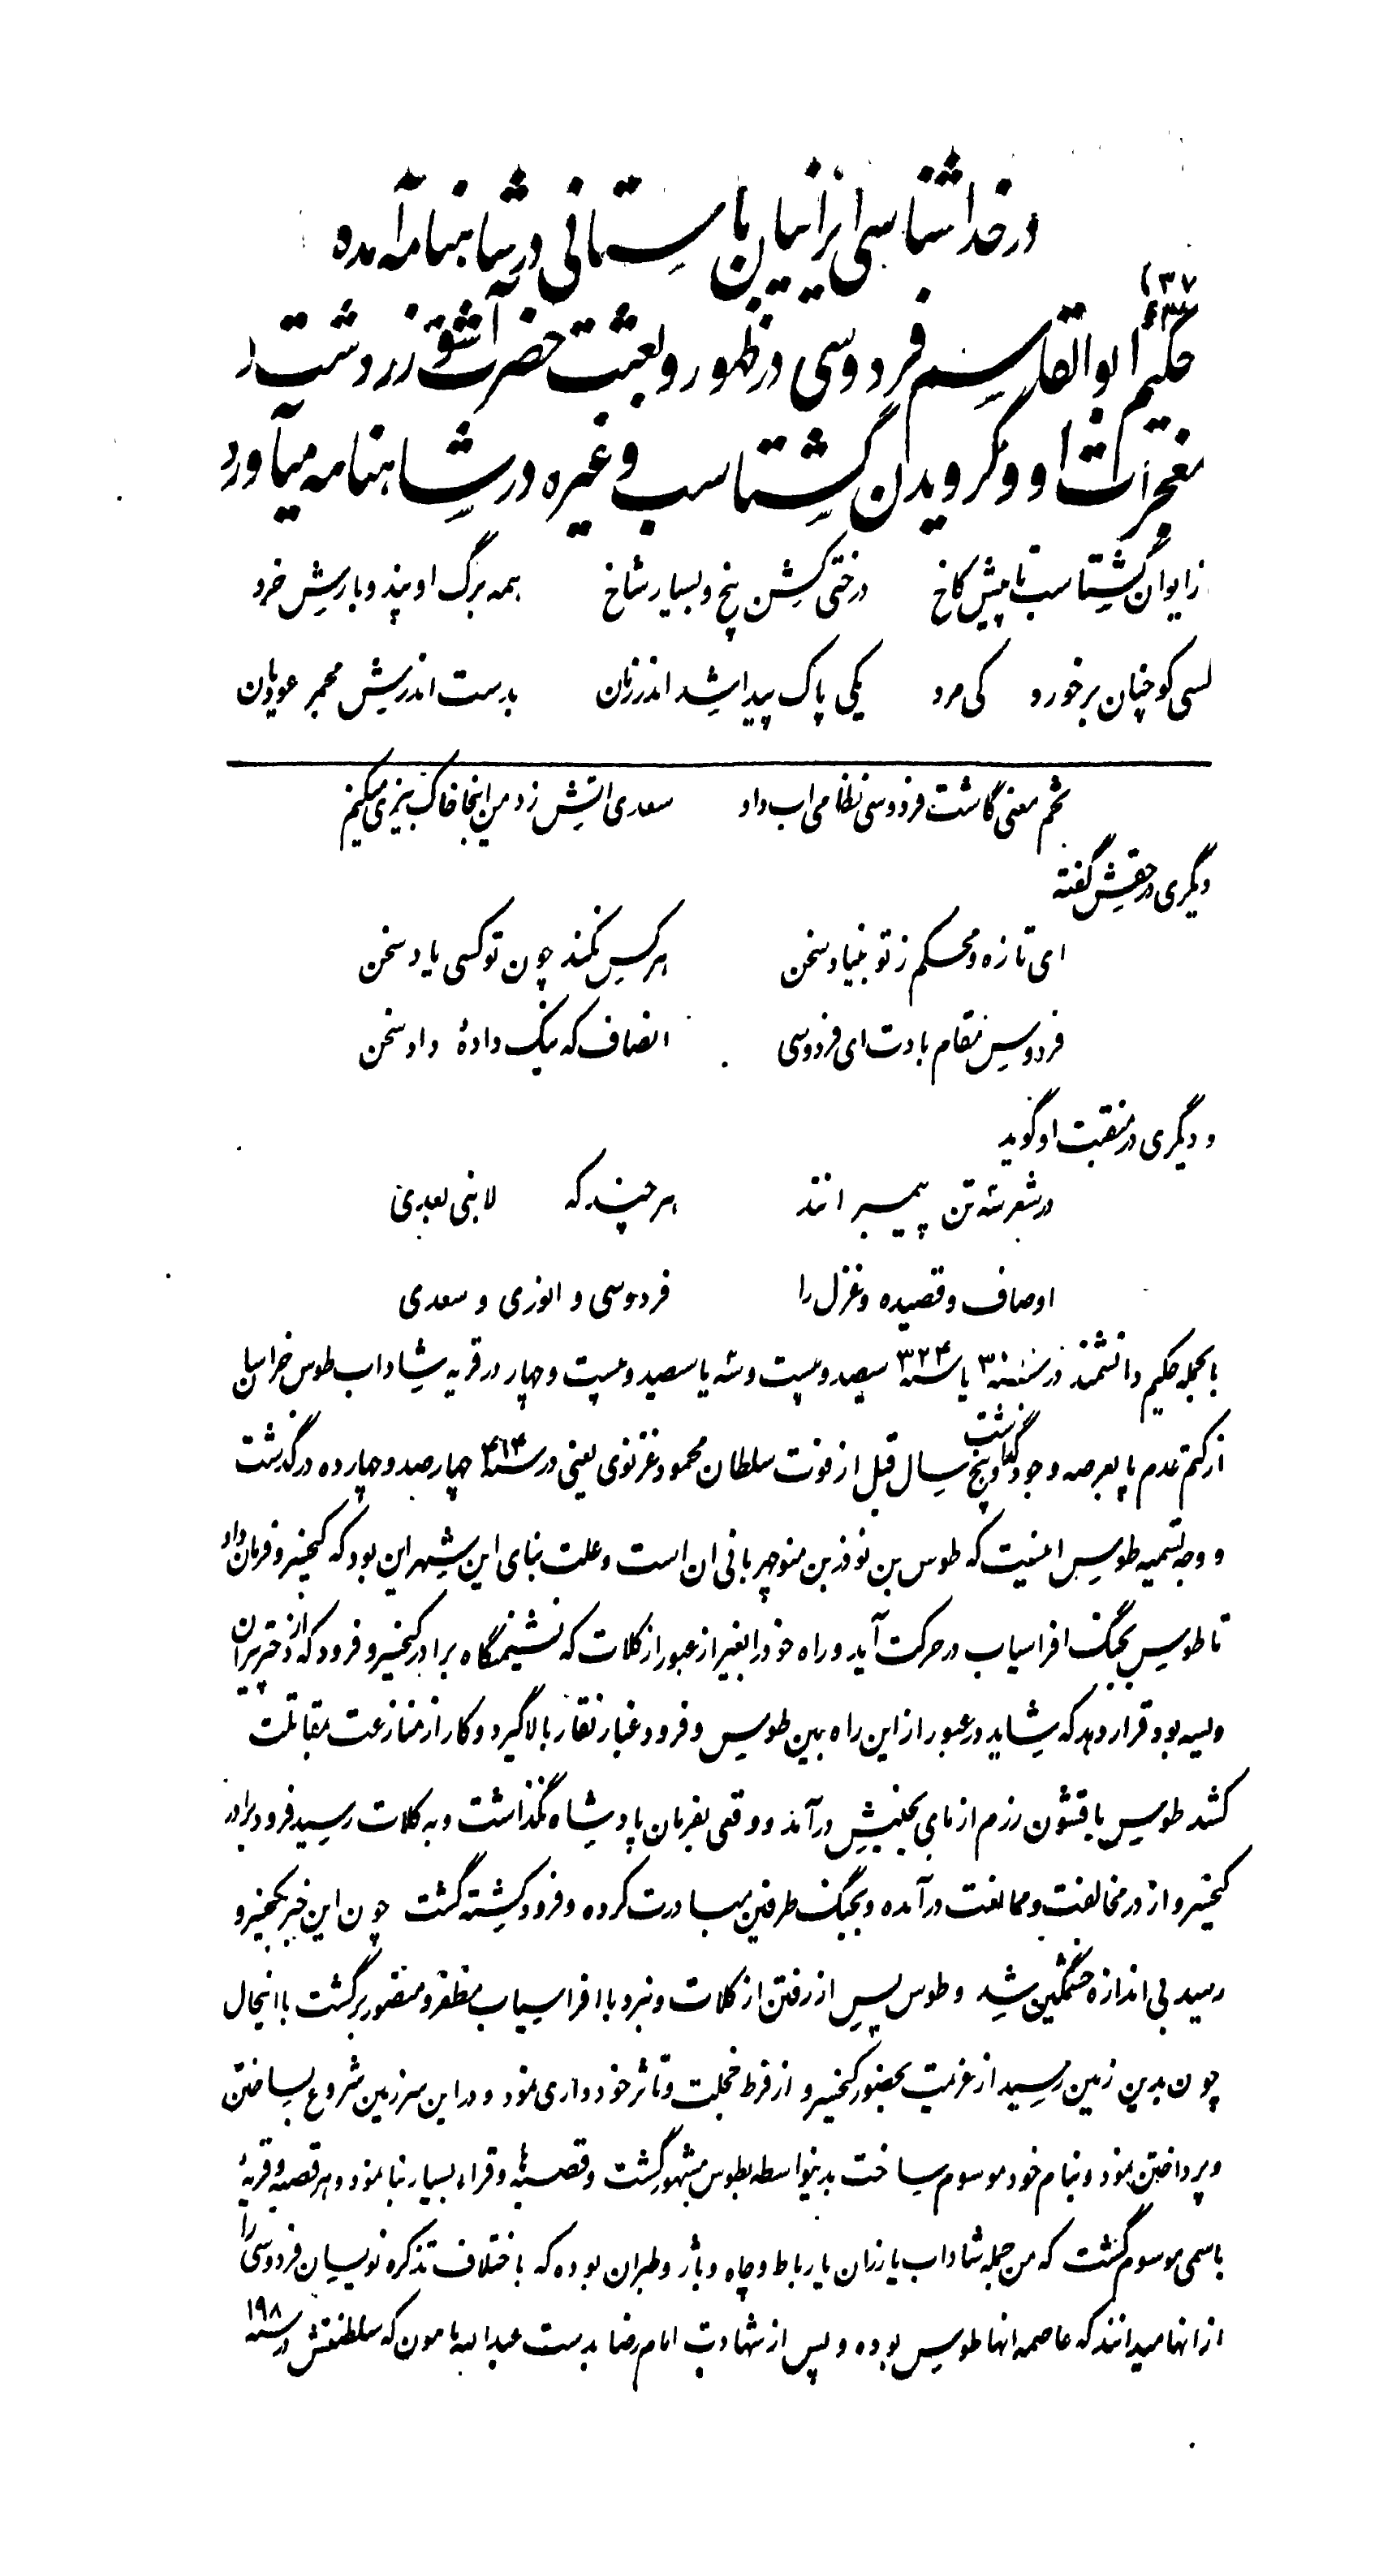 در خداشناسی ایرانیان باستانی در شاهنامه آمده
۱۳۷
حکیم ابوالقاسم فردوسی در ظهور و بعثت حضرت آشو زردشت و
معجزات او و گرویدن گشتاسب و غیره در شاهنامه میآورد
ز ایوان گشتاسب تا پیش کاخ درختی گشن بیخ و بسیار شاخ همه برگ او پند و بارش خرد
کسی کو چنان بر خورد کی مرد یکی پاک پیدا شد اندر زمان بدست اندرش مجمر عودیان
تخم معنی کاشت فردوسی نظامی اب داد سعدی اتش زد من اینجا خاک بیزی میکنم
دیگری در حقش گفته
ای تازه و محکم ز تو بنیاد سخن هرگس نکند چون تو کسی یاد سخن
فردوس مقام بادت ای فردوسی انصاف که نیک دادهٔ داد سخن
و دیگری در منقبت او گوید
در شعر سه تن پیمبر انند هر چند که لا نبی بعدی
اوصاف و قصیده و غزل را فردوسی و انوری و سعدی
بالجمله حکیم دانشمند در سنه یا سنه ۳۲۴ سیصد و بیست و سه یا سیصد و بیست و چهار در قریه شاداب طوس خراسان
از کتم عدم پا بعرصه وجود گذاشت و پنج سال قبل از فوت سلطان محمود غزنوی یعنی در سنه ۴۱۴ چهار صد و چهارده در گذشت
و وجه تسمیه طوس اینست که طوس بن نوذر بن منوچهر بانی ان است و علت بنای این شهر این بود که کیخسرو فرمان داد
تا طوس بجنگ افراسیاب در حرکت آید و راه خود را بغیر از عبور از کلات که نشیمنگاه برادر کیخسرو فرود که از دختر پیران
ویسه بود قرار دهد که شاید در عبور از این راه بین طوس و فرود غبار نقار بالا گیرد و کار از منازعت بمقاتلت
کشد طوس با قشون رزم از مای بجنبش درآمد و وقعی بفرمان پادشاه نگذاشت و به کلات رسید فرود برادر
کیخسرو از در مخالفت و ممانعت درآمده و بجنگ طرفین مبادرت کرده و فرود کشته گشت چون این خبر بکیخسرو
رسید بی اندازه خشمگین شد و طوس پس از رفتن از کلات و نبرد با افراسیاب مظفر و منصور برگشت با اینحال
چون بدین زمین رسید از عزیمت بحضور کیخسرو از فرط خجلت و تأثر خود داری نمود و در این سرزمین شروع بساختن
و پرداختن نمود و بنام خود موسوم ساخت بدینواسطه بطوس مشهور گشت و قصبه ها و قراء بسیار بنا نمود و هر قصبه و قریهٔ
باسمی موسوم گشت که من جمله شاداب یا رزان یا رباط و چاه و باژ و طبران بوده که باختلاف تذکره نویسان فردوسی را
از انها میدانند که عاصمه انها طوس بوده و پس از شهادت امام رضا بدست عبدالله مامون که سلطنتش در سنه ۱۹۸